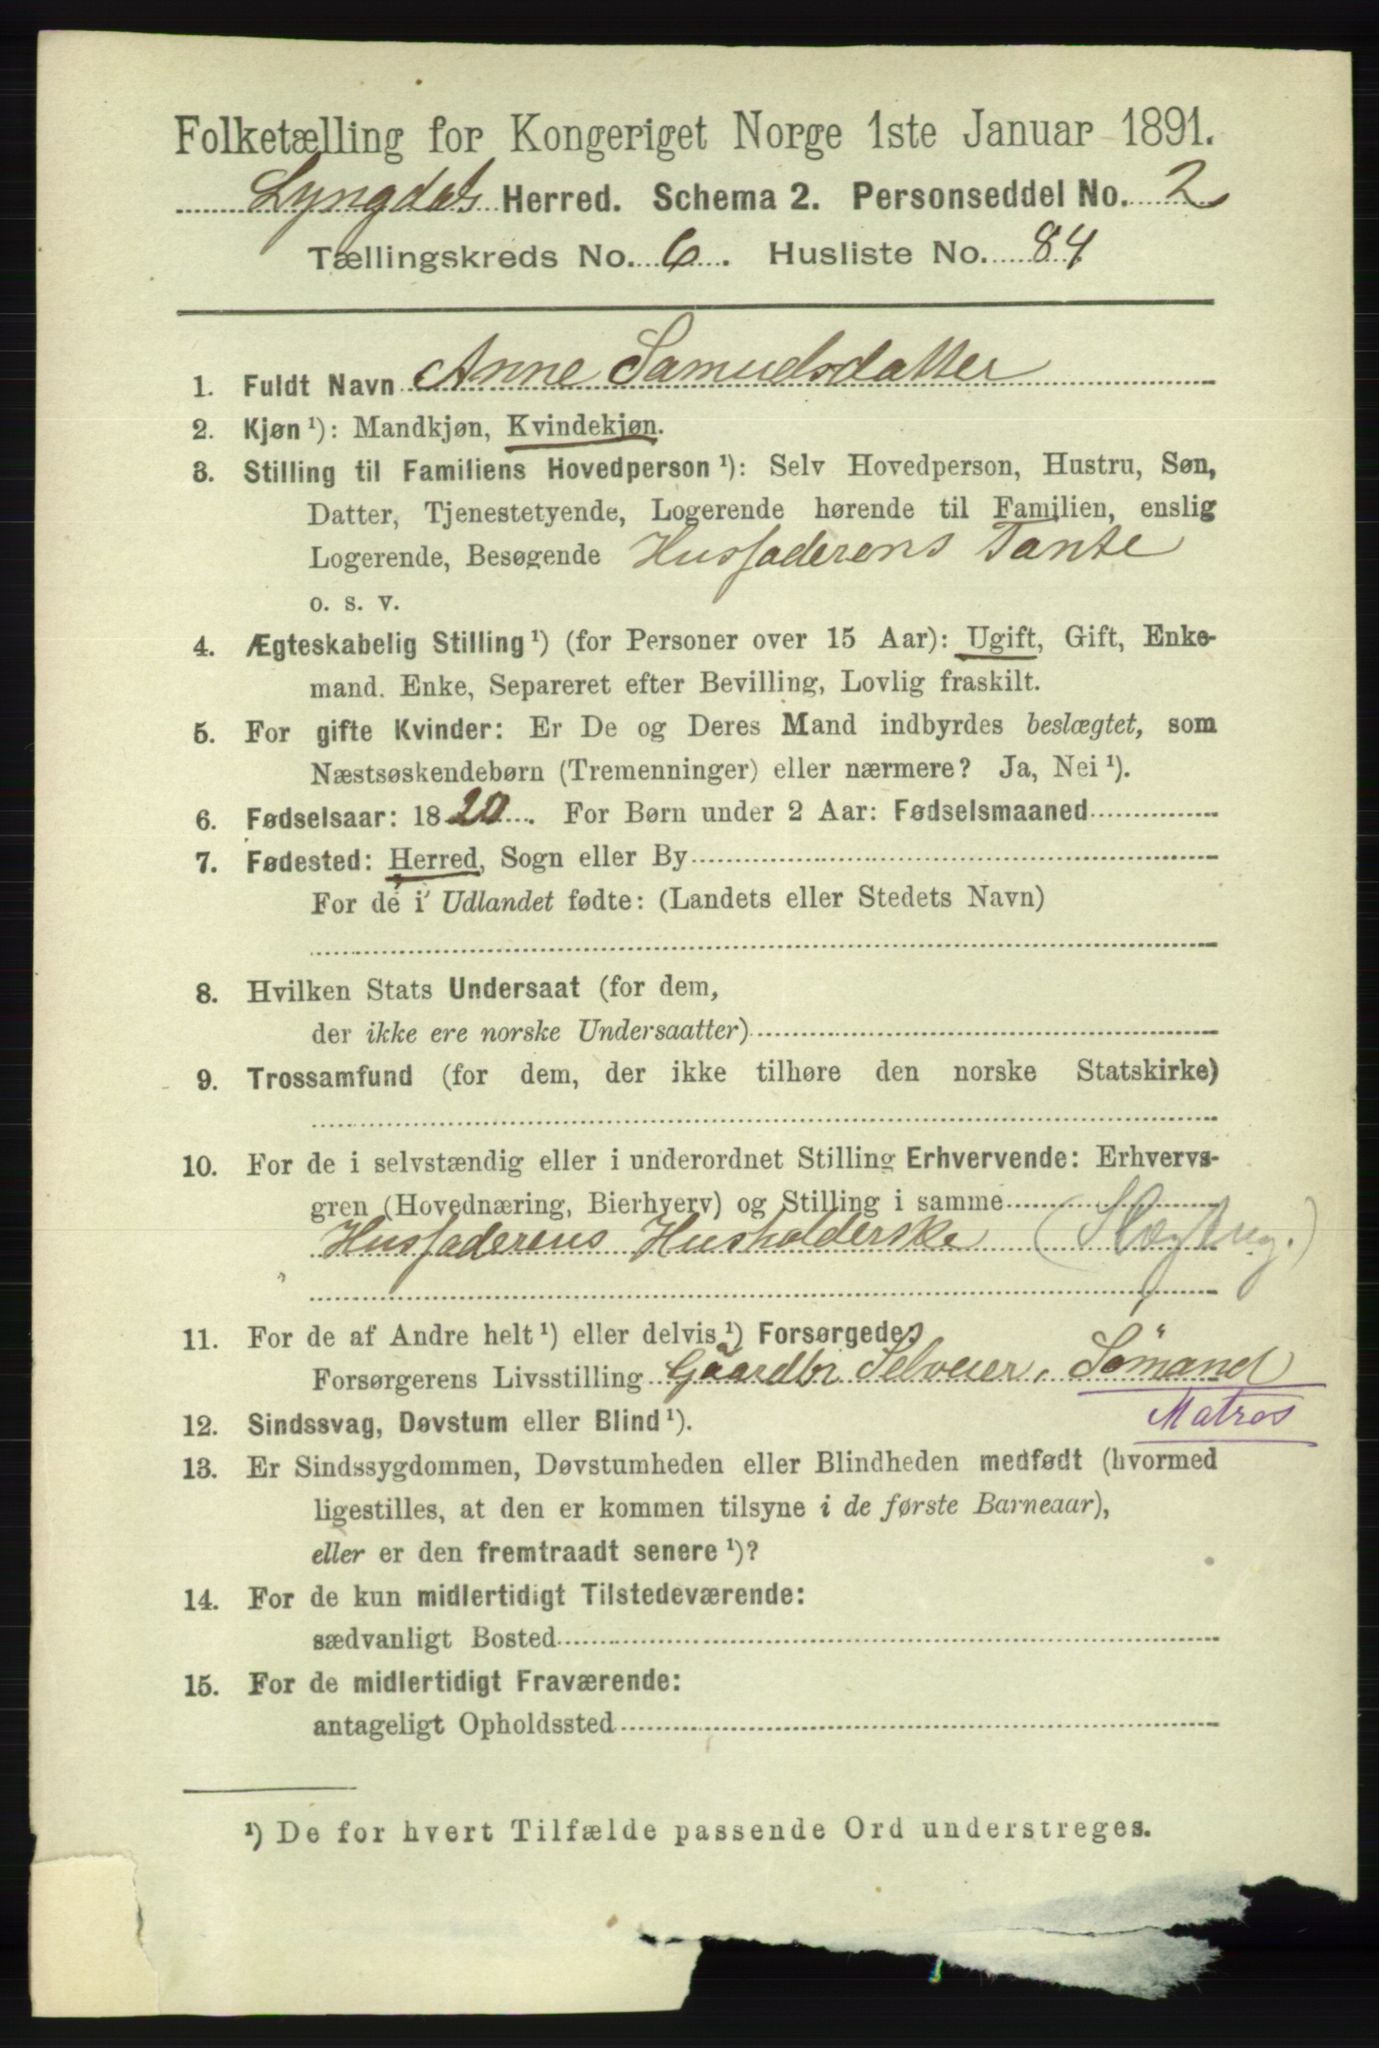 Folketælling for Kongeriget Norge 1ste Januar 1891.
Lyngdals Herred. Schema 2. Personseddel No. 2
Tællingskreds No. 6. Husliste No. 84
1. Fuldt Navn Anne Samuelsdatter
2. Kjøn ¹): Mandkjøn, Kvindekjøn.
3. Stilling til Familiens Hovedperson ¹): Selv Hovedperson, Hustru, Søn,
Datter, Tjenestetyende, Logerende hørende til Familien, enslig
Logerende, Besøgende Husfaderens Tante
o. s. v.
4. Ægteskabelig Stilling ¹) (for Personer over 15 Aar): Ugift, Gift, Enke-
mand. Enke, Separeret efter Bevilling, Lovlig fraskilt.
5. For gifte Kvinder: Er De og Deres Mand indbyrdes beslægtet, som
Næstsøskendebørn (Tremenninger) eller nærmere? Ja, Nei ¹).
6. Fødselsaar: 1820. For Børn under 2 Aar: Fødselsmaaned
7. Fødested: Herred, Sogn eller By
For de i Udlandet fødte: (Landets eller Stedets Navn)
8. Hvilken Stats Undersaat (for dem,
der ikke ere norske Undersaatter)
9. Trossamfund (for dem, der ikke tilhøre den norske Statskirke)
10. For de i selvstændig eller i underordnet Stilling Erhvervende: Erhvervs-
gren (Hovednæring, Bierhverv) og Stilling i samme
Husfaderens Husholderske
11. For de af Andre helt ¹) eller delvis ¹) Forsørgedes
Forsørgerens Livsstilling Gaardbr Selveier, Sömand
Matros
12. Sindssvag, Døvstum eller Blind ¹).
13. Er Sindssygdommen, Døvstumheden eller Blindheden medfødt (hvormed
ligestilles, at den er kommen tilsyne i de første Barneaar),
eller er den fremtraadt senere ¹)?
14. For de kun midlertidigt Tilstedeværende:
sædvanligt Bosted
15. For de midlertidigt Fraværende:
antageligt Opholdssted
¹) De for hvert Tilfælde passende Ord understreges.